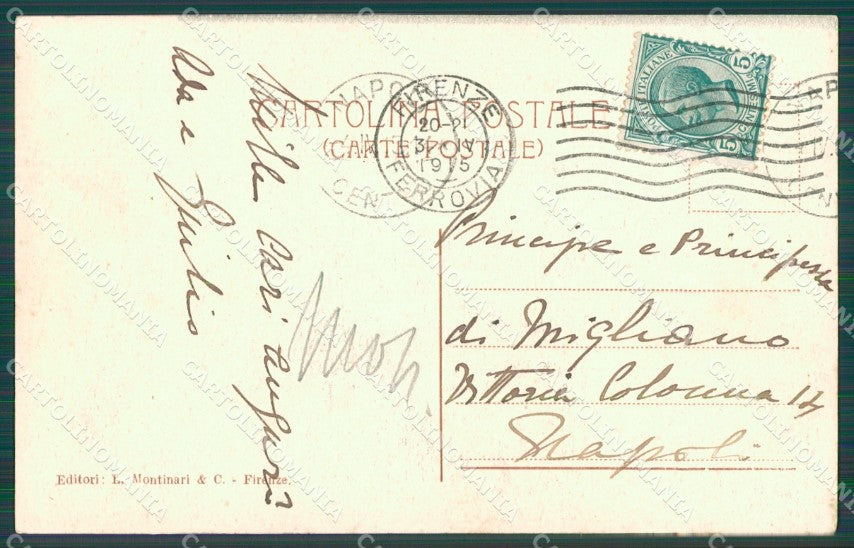 CARTOLINA POSTALE
(CARTE POSTALE)
FIRENZE
20-21
3 - IV
1915
FERROVIA
NAPOLI
CENT
POSTE ITALIANE
5
CENTESIMI
5
Mille cari auguri
Ada e Giulio
Principe e Principessa
di Migliano
Vittoria Colonna 14
Napoli
Editori: L. Montinari & C. - Firenze.
CARTOLINOMANIA